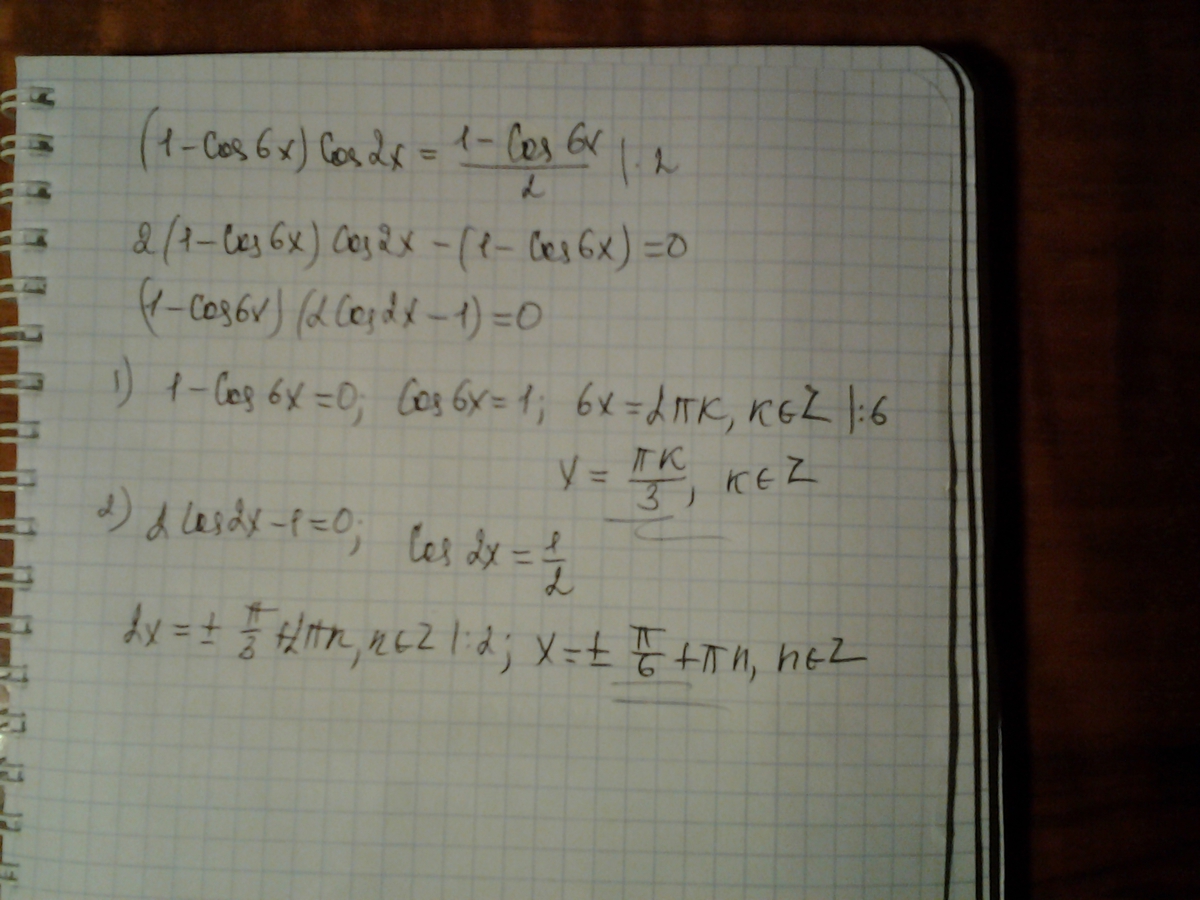 (1-Cos6x)Cos2x = \frac{1-Cos6x}{2} |·2
2(1-Cos6x)Cos2x-(1-Cos6x)=0
(1-Cos6x)(2Cos2x-1)=0
1) 1-Cos6x=0; Cos6x=1; 6x=2πк, к∈Z |:6
x = \frac{πк}{3}, к∈Z
2) 2Cos2x-1=0; Cos2x = \frac{1}{2}
2x = ± \frac{π}{3} + 2πn, n∈Z |:2; x = ± \frac{π}{6} + πn, n∈Z